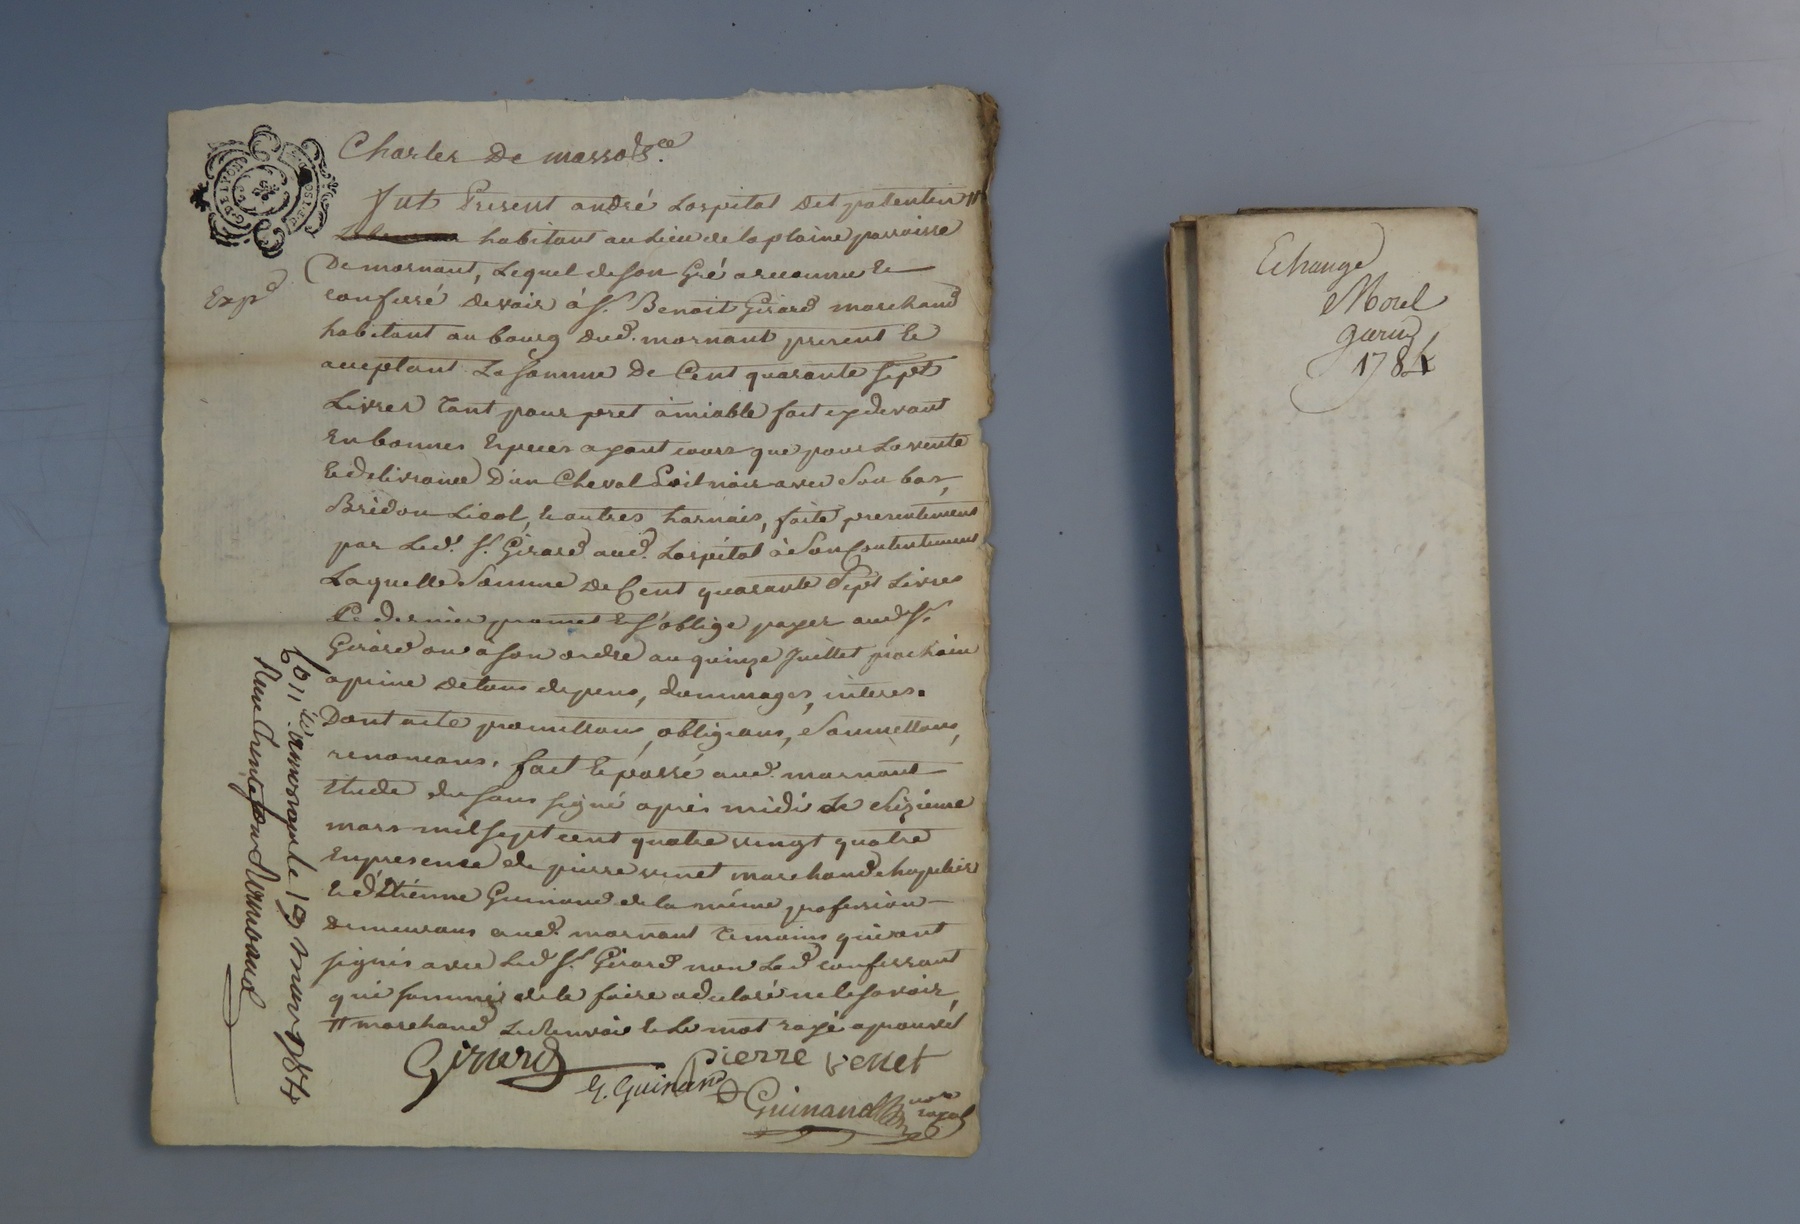 G. DE LYON
Charles De
Expd
fut Present andré Lospital dit patentin #
habitant au Lieu de la plaine parroisse
De mornant, Lequel de son Gré a reconnu Et
confessé devoir à Sr. Benoit Girard marchand
habitant au bourg dud. mornant present Et
acceptant La somme De Cent quarante sept
Livres tant pour pret amiable fait cy devant
En bonnes Especes ayant cours que pour La vente
Et delivrance D'un Cheval Poil noir avec Son bas,
Bridon Licol, Et autres harnais, faite presentement
par Led. Sr. Girard aud. Lospital à Son Contentement
Laquelle Somme De Cent quarante Sept Livres
Ce dernier promet Et s'oblige payer aud. Sr.
Girard ou à son ordre au quinze Juillet prochain
a peine de tous depens, dommages, interes.
Dont acte promettans, obligeans, Soumettans,
renonceans. fait Et passé aud. mornant
Etude du sous signé après midi Le seizieme
mars mil sept cent quatre vingt quatre
En presence de pierre venet marchand chapelier
Et d'Etiénne Guinand de la même profession
demeurans aud. mornant temoins qui ont
signés avec Led. Sr. Girard non Led. confessant
qui sommé de le faire a declaré ne le savoir,
# marchand Le Renvoi Et Le mot rayé aprouvés
Girard Pierre Venet
E. Guinand
Guinand nore royal
Con.lé a mornant le 19 mars 1784
Reçu trente sous
Echange
Morel
1784